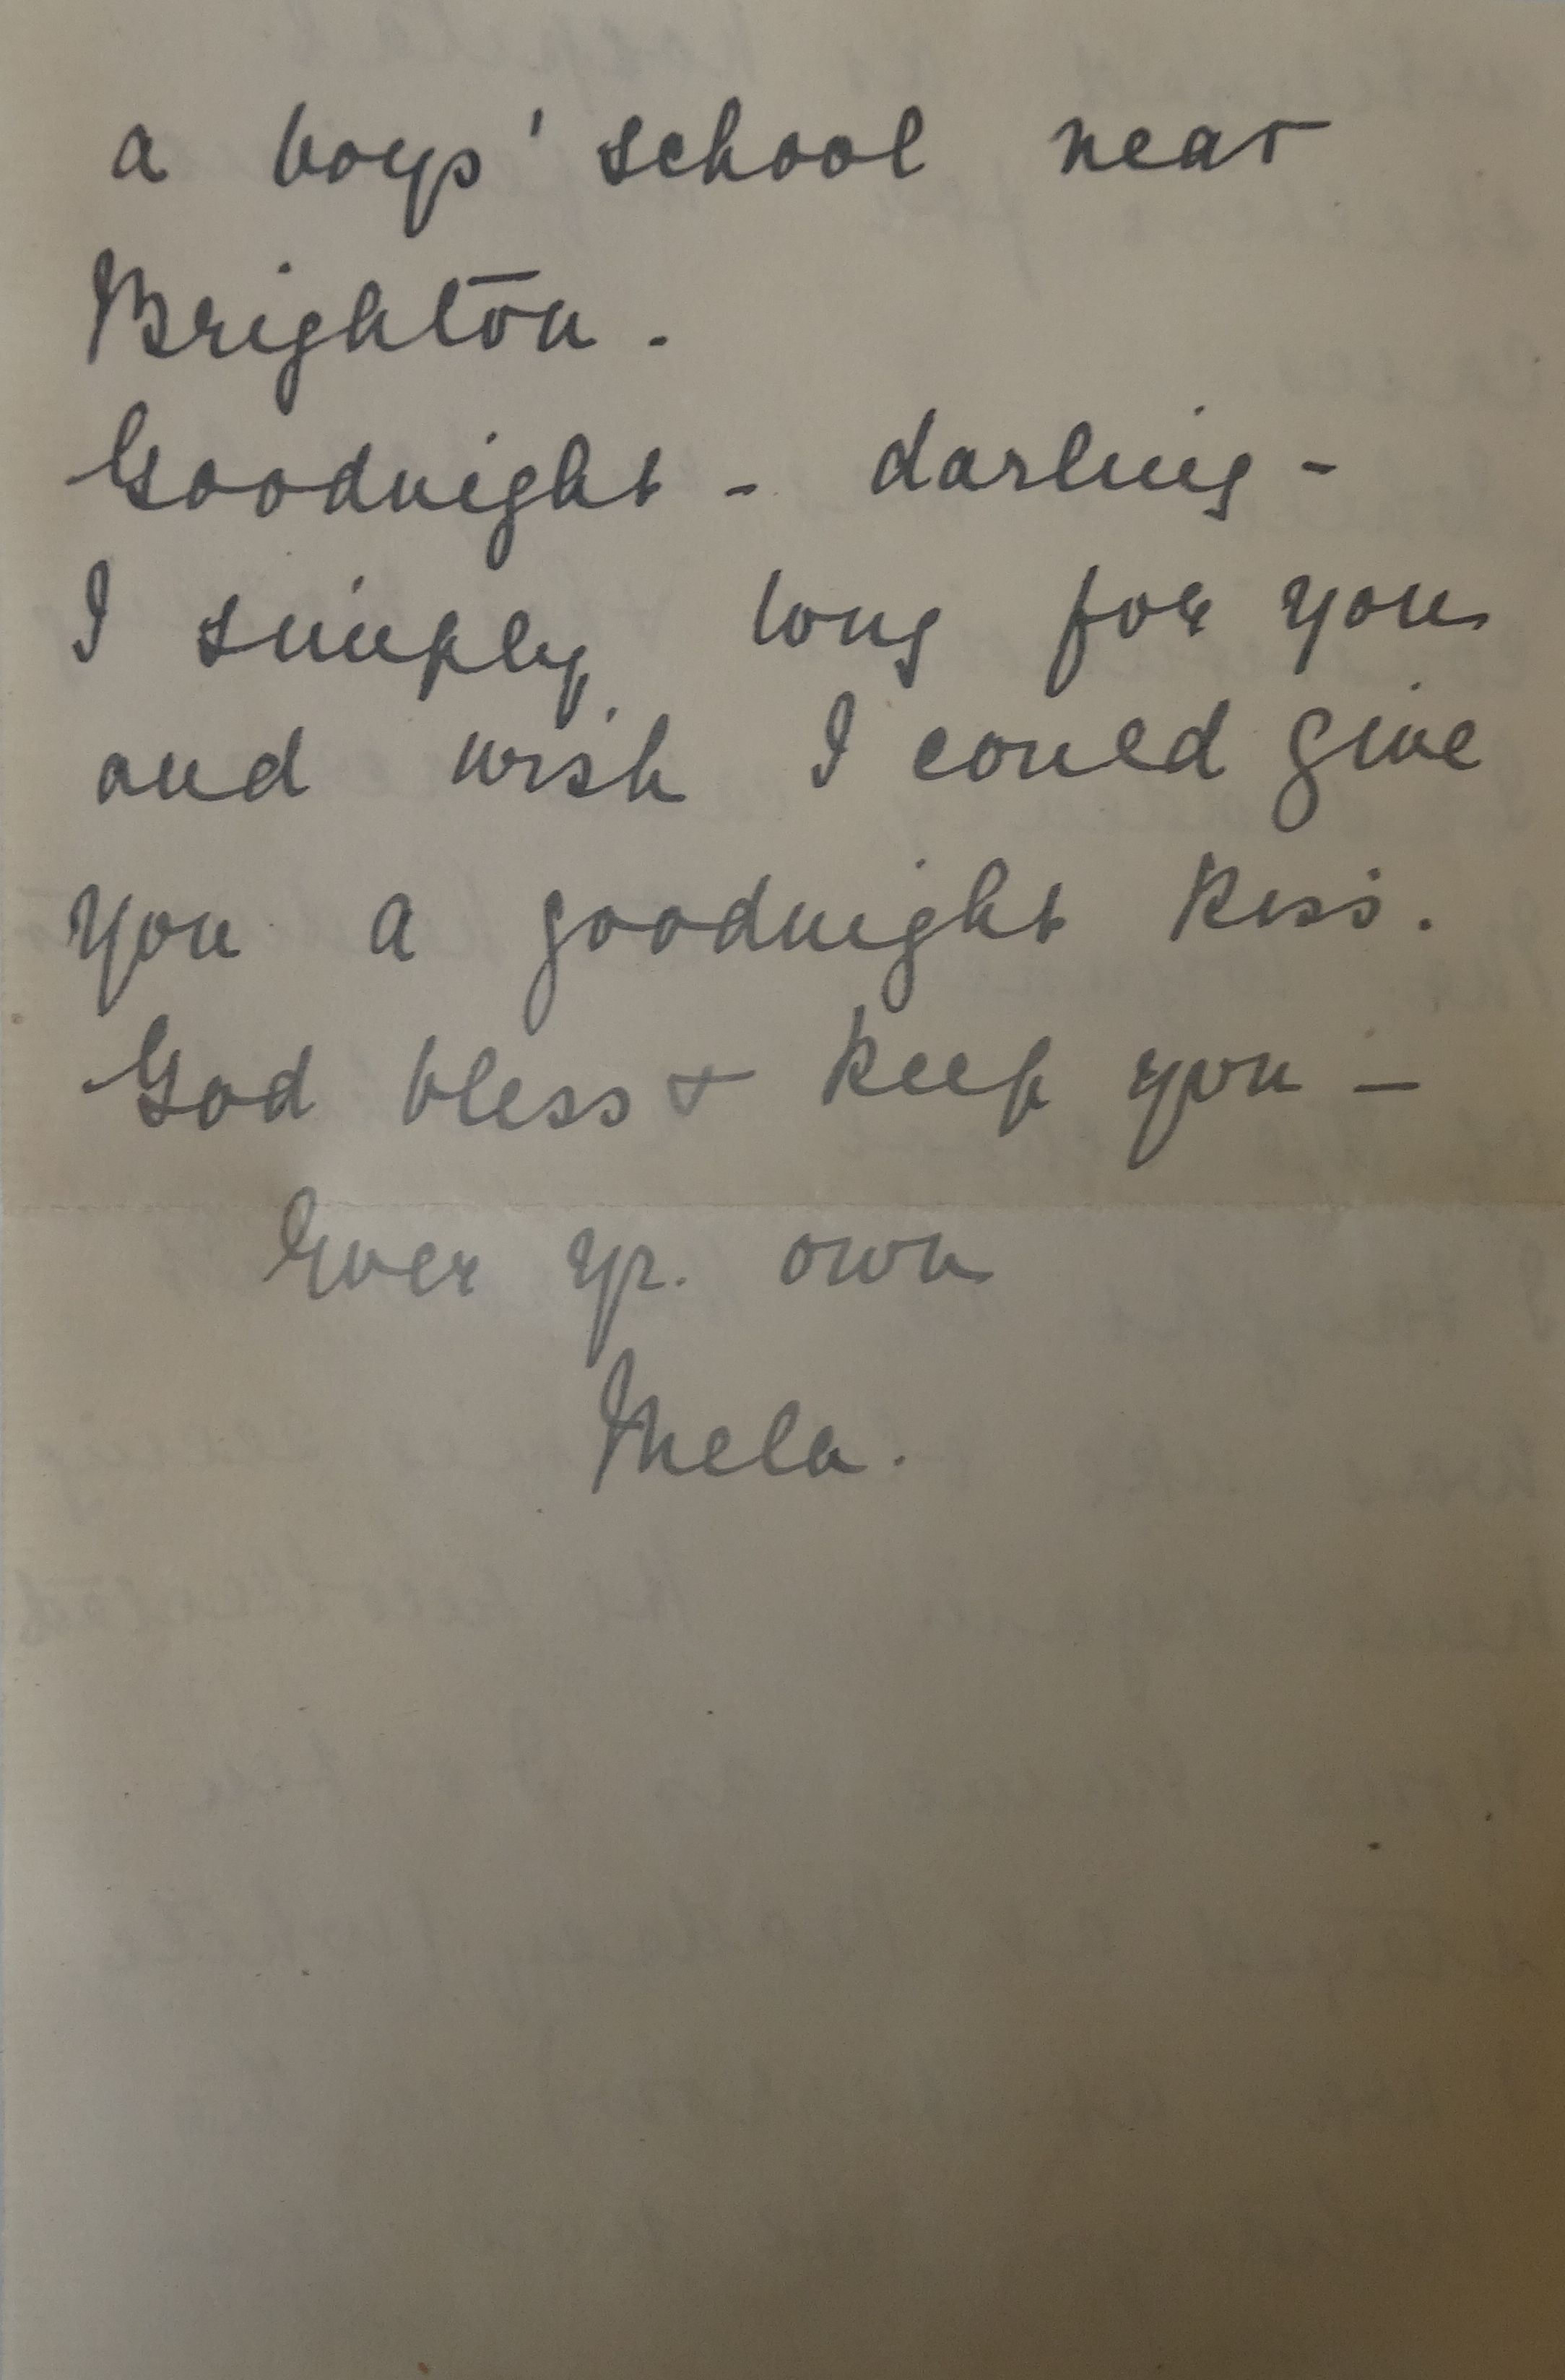 a boys' school near
Brighton.
Goodnight - darling -
I simply long for you
and wish I could give
you a goodnight kiss.
God bless & keep you -
Ever yr. own
Mela.